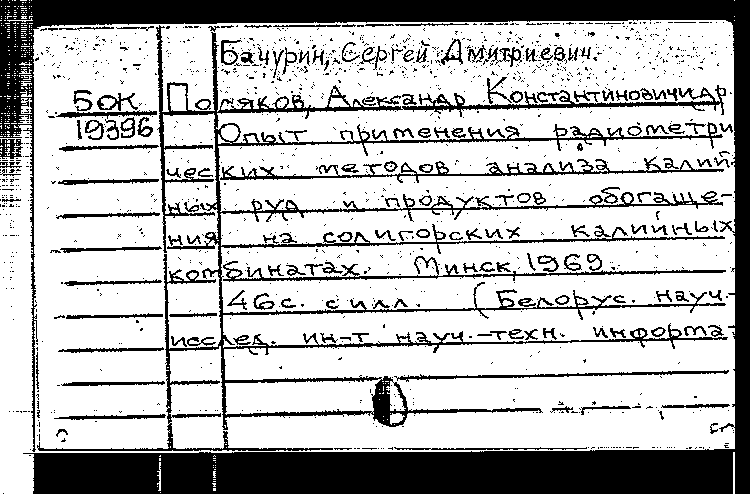 Бачурин, Сергей Дмитриевич.
БОК Поляков, Александр Константинович и др
19396 Опыт применения радиометри
ческих методов анализа калий-
ных руд и продуктов обогаще-
ния на солигорских калийных
комбинатах. Минск, 1969.
46с. с илл. (Белорус. науч.-
исслед. ин-т науч.-техн. информа-